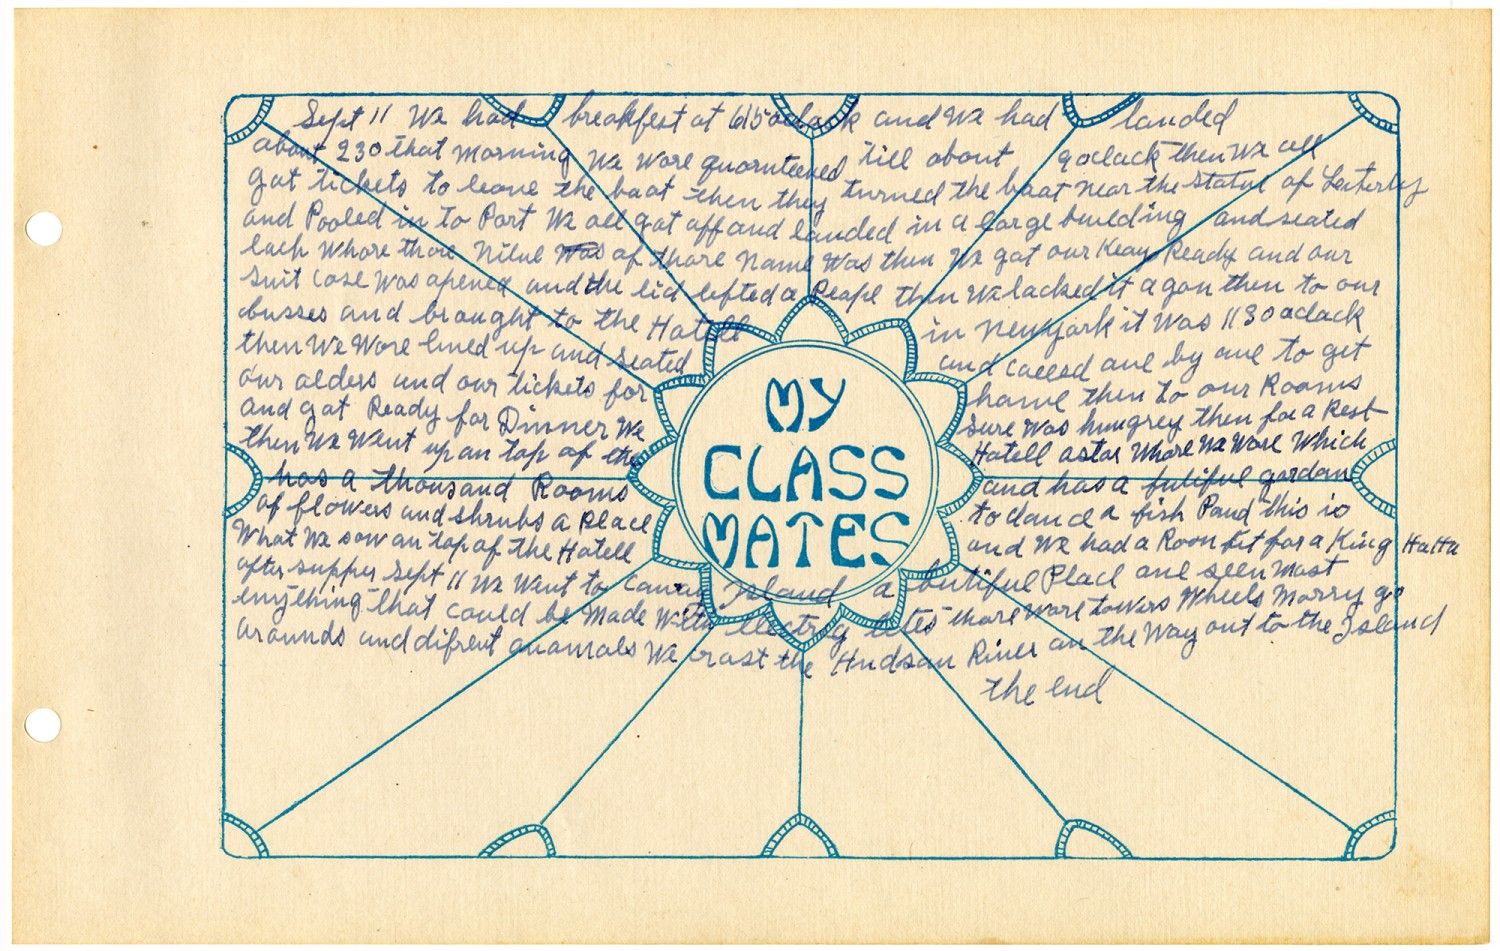 Sept 11 We had breakfest at 615 oclock and We had landed
about 230 that morning We Wore quornteened till about 9 oclock then We all
got tickets to leave the boat then they turned the boat near the Statue of
and Pooled in to Port We all got off and landed in a large building and seated
each Whare thare was of thare Name Was then We got our Ready and our
suit case was opened and the lid lifted a Peape then We lacked it agan then to our
busses and braught to the Hatell in Newyark it Was 1130 oclack
then We Wore lined up and seated and called one by one to get
our alders and our tickets for home then to our Rooms
and got Ready for Dinner We Sure Was hungrey then for a Rest
then We Went up on top of the Hatell astor Whare We Wore Which
has a thousand Rooms and has a futiful gordan
of flowers and shrubs a Place to dance a fish Pand this is
What We saw on top of the Hatell and We had a Room fit for a King Ha Ha
after supper Sept 11 We Went to Island a butiful Place one seen most
enything that could be Made With lites thare Wore towers Wheels Marry go
arounds and difrent anamals We crast the Hudsan River on the Way out to the Island
the end
MY
CLASS
MATES